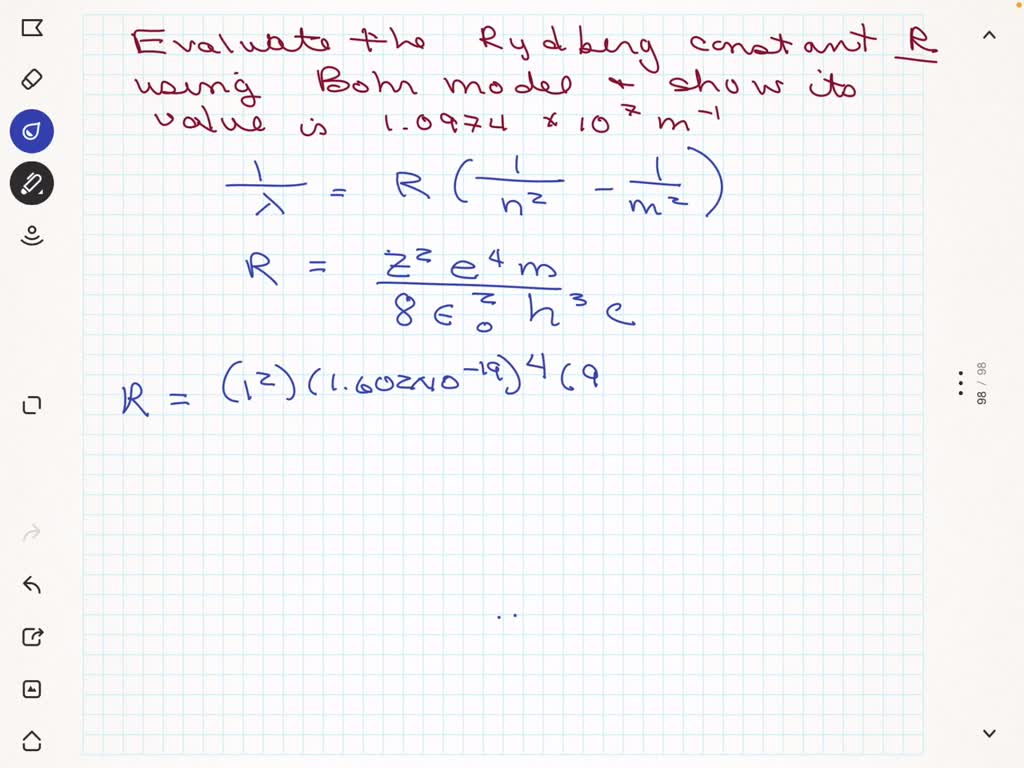 Evaluate the Rydberg constant R
using Bohr model & show its
value is 1.0974 × 10^7 m^-1
1/λ = R (1/n^2 - 1/m^2)
R = Z^2 e^4 m / 8 ϵ_0^2 h^3 c
R = (1^2)(1.602×10^-19)^4 (9
98 / 98